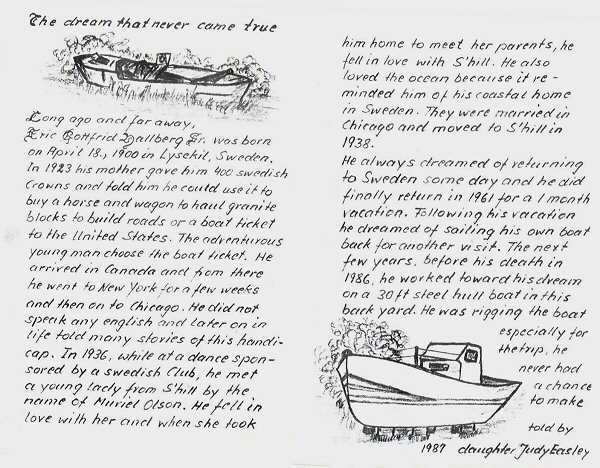 The dream that never came true
Long ago and far away,
Eric Gottfrid Hallberg Jr. was born
on April 18., 1900 in Lysekil, Sweden.
In 1923 his mother gave him 400 swedish
Crowns and told him he could use it to
buy a horse and wagon to haul granite
blocks to build roads or a boat ticket
to the United States. The adventurous
young man choose the boat ticket. He
arrived in Canada and from there
he went to New York for a few weeks
and then on to Chicago. He did not
speak any english and later on in
life told many stories of this handi-
cap. In 1936, while at a dance spon-
sored by a swedish Club, he met
a young lady from S'hill by the
name of Muriel Olson. He fell in
love with her and when she took
him home to meet her parents, he
fell in love with S'hill. He also
loved the ocean because it re-
minded him of his coastal home
in Sweden. They were married in
Chicago and moved to S'hill in
1938.
He always dreamed of returning
to Sweden some day and he did
finally return in 1961 for a 1 month
vacation. Following his vacation
he dreamed of sailing his own boat
back for another visit. The next
few years, before his death in
1986, he worked toward his dream
on a 30ft steel hull boat in this
back yard. He was rigging the boat
especially for
the trip, he
never had
a chance
to make
told by
1987 daughter Judy Easley